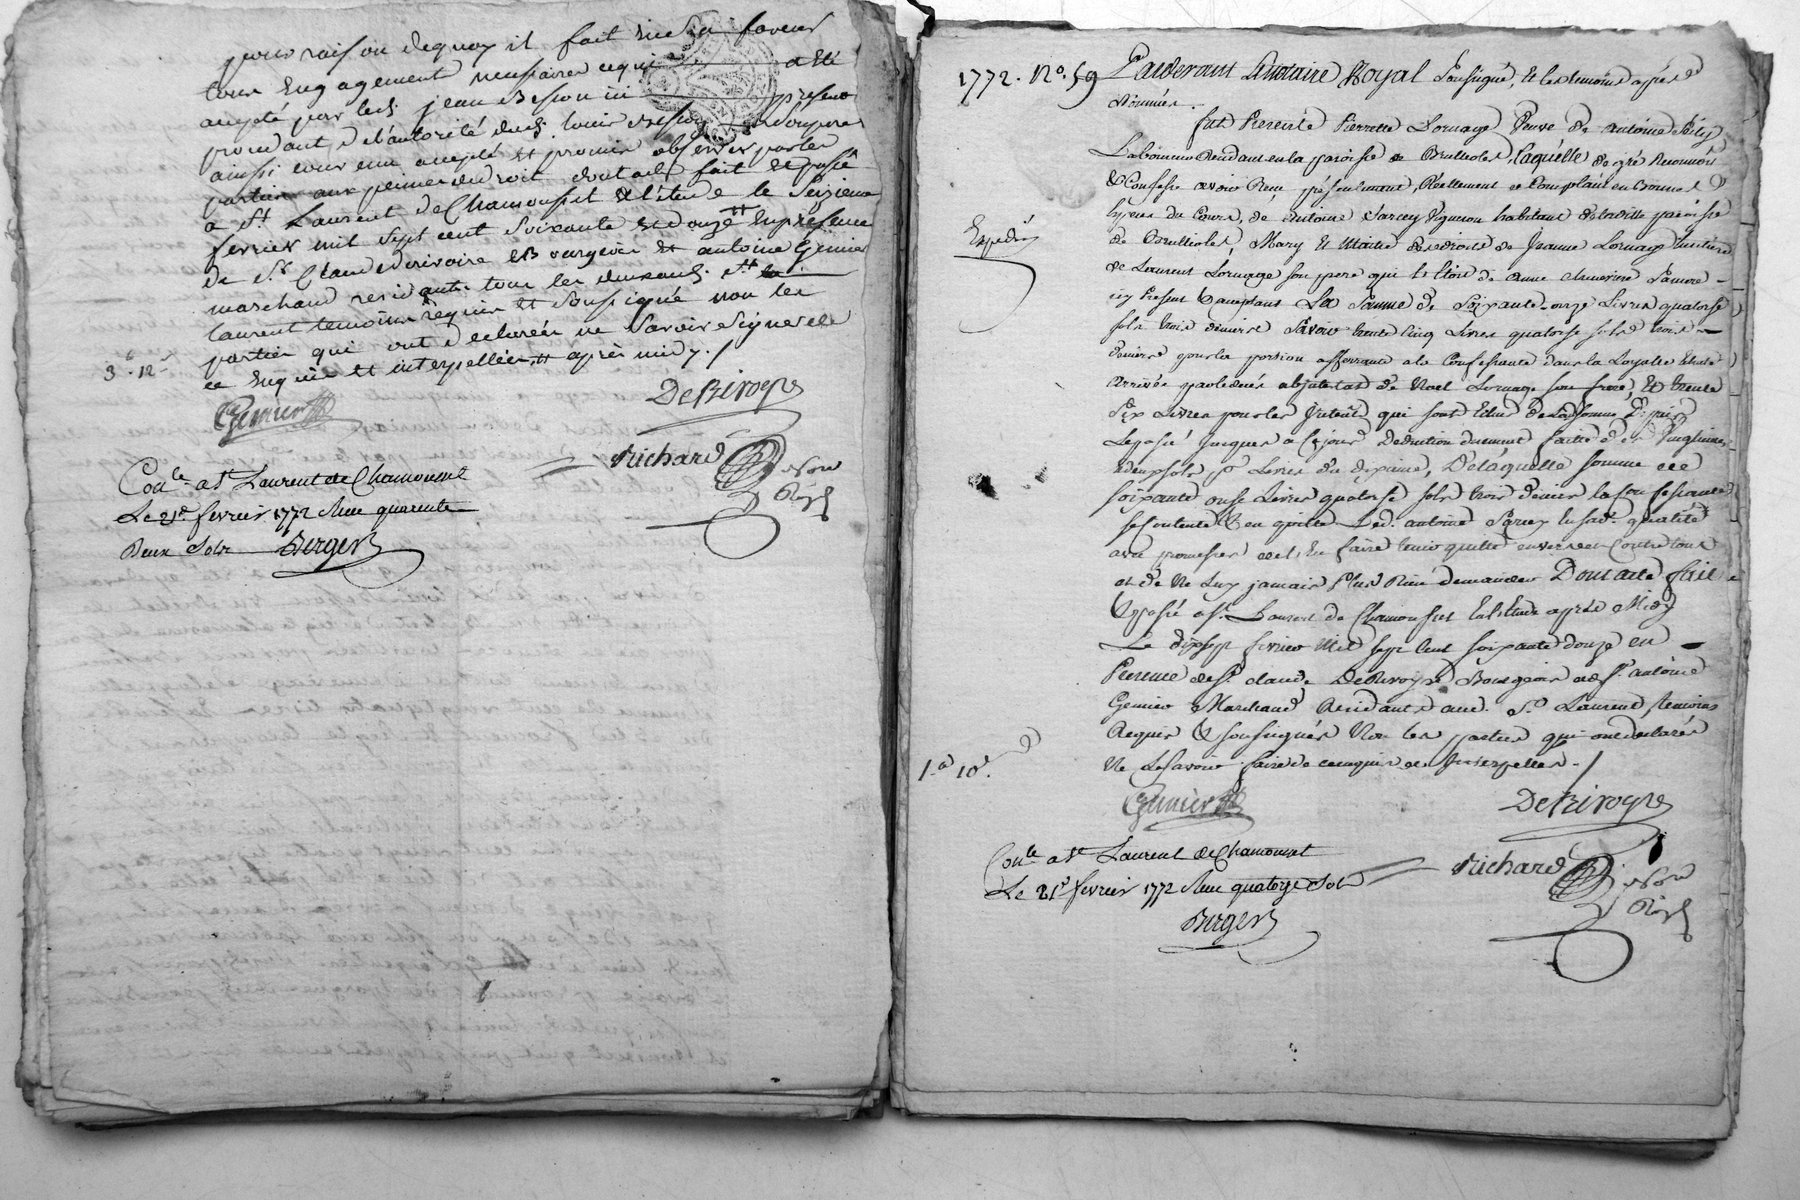 pour raison dequoy il fait en sa faveur
tous Engagement necessaires ce qui a été
accepté par led. jean Besson ici present
procedant de l'autorité dud. louis Besson
ainsi convenu accepté et promis observer par les
parties aux peines du droit dont acte fait et passé
a St. Laurent De Chamousset Etude le Seizieme
fevrier mil sept cent Soixante et douze En presence
de Sr. Claude Derivoire Bourgeois et antoine Genier
marchand residants tous les deux aud. St.
laurent temoins requis et soussignés non les
parties qui ont declarées ne Savoir Signer de
ce Enquis et interpellées après midy./
3 . 12
Genier
DeRivoyre
Richard
nore
Royl
Conle. a St Laurent de Chamousset
Le 21e. fevrier 1772 Reçu quarente
Deux Sols Berger
1772. No. 59
Pardevant Le Notaire Royal Soussigné, Et les temoins après
nommés.
fut Presente Pierrette Lornage Veuve De antoine
Laboureur Residant en la paroisse de Brullioles, Laquelle de gré Reconnoit
& Confesse avoir Reçu présentement, Réellement et Comptant en Bonnes
Expedié
Especes du Cours, de Antoine Sarcey Vigneron habitant de laditte paroisse
de Brullioles, Mary Et Maitre des droits de Jeanne Lornage heritiere
de Laurent Lornage son pere qui l'étoit de anne
icy Present Comptant La Somme de Soixante onze Livres quatorze
sols trois deniers Savoir trente Cinq Livres quatorze sols trois
deniers pour la portion afferante a la Confessante dans la
arrivée par le deces abjntestat de Noel Lornage son frere, Et trente
Six Livres pour les Interêts qui sont Echu de la ditte Somme
jusques a ce jour Deduction dument faitte des Vingtiemes
& deux sols pr Livres du dixieme, De laquelle somme de
soixante onze Livres quatorze sols trois deniers la Confessante
se Contente & en quitte Led. antoine Sarcey En sad. qualité
avec promesses de l'En faire tenir quitte envers et Contre tous
et de Ne Luy jamais Plus Rien demander Dont acte fait
& passé a St. Laurent de Chamousset En l'Etude après Midy
Le dixsept fevrier Mil sept Cent soixante douze en
Presence de Sr. Claude DeRivoyre Bourgeois et de Sr. antoine
Genier Marchand Residants aud. St. Laurent, temoins
Requis & soussignés Non les parties qui ont declarés
Ne Le Savoir faire de ce enquis et Interpellés./
1.# 10s.
Genier
DeRivoyre
Richard
nore
Royl
Conle a St Laurent de Chamousset
Le 21e fevrier 1772 Reçu quatorze Sols
Berger